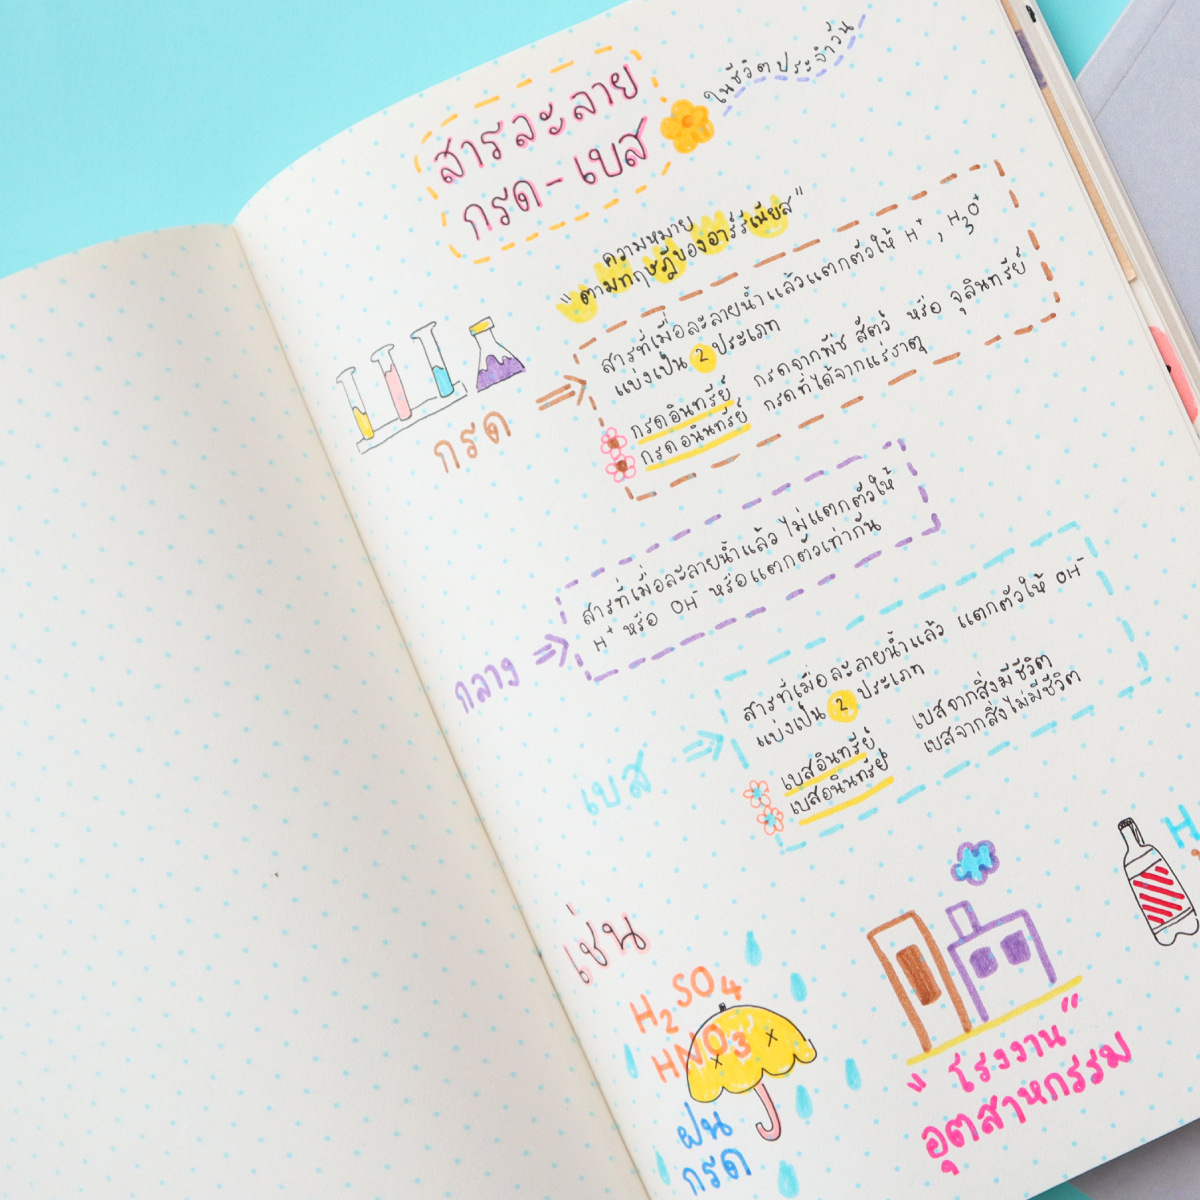 สารละลาย
กรด-เบส
ในชีวิตประจำวัน
ความหมาย
"ตามทฤษฎีของอาร์รีเนียส"
กรด
สารที่เมื่อละลายน้ำแล้วแตกตัวให้ H⁺, H₃O⁺
แบ่งเป็น 2 ประเภท
กรดอินทรีย์ กรดจากพืช สัตว์ หรือ จุลินทรีย์
กรดอนินทรีย์ กรดที่ได้จากแร่ธาตุ
กลาง
สารที่เมื่อละลายน้ำแล้ว ไม่แตกตัวให้
H⁺ หรือ OH⁻ หรือแตกตัวเท่ากัน
เบส
สารที่เมื่อละลายน้ำแล้ว แตกตัวให้ OH⁻
แบ่งเป็น 2 ประเภท
เบสอินทรีย์ เบสจากสิ่งมีชีวิต
เบสอนินทรีย์ เบสจากสิ่งไม่มีชีวิต
เช่น
H₂SO₄
HNO₃
ฝน
กรด
"โรงงาน"
อุตสาหกรรม
H